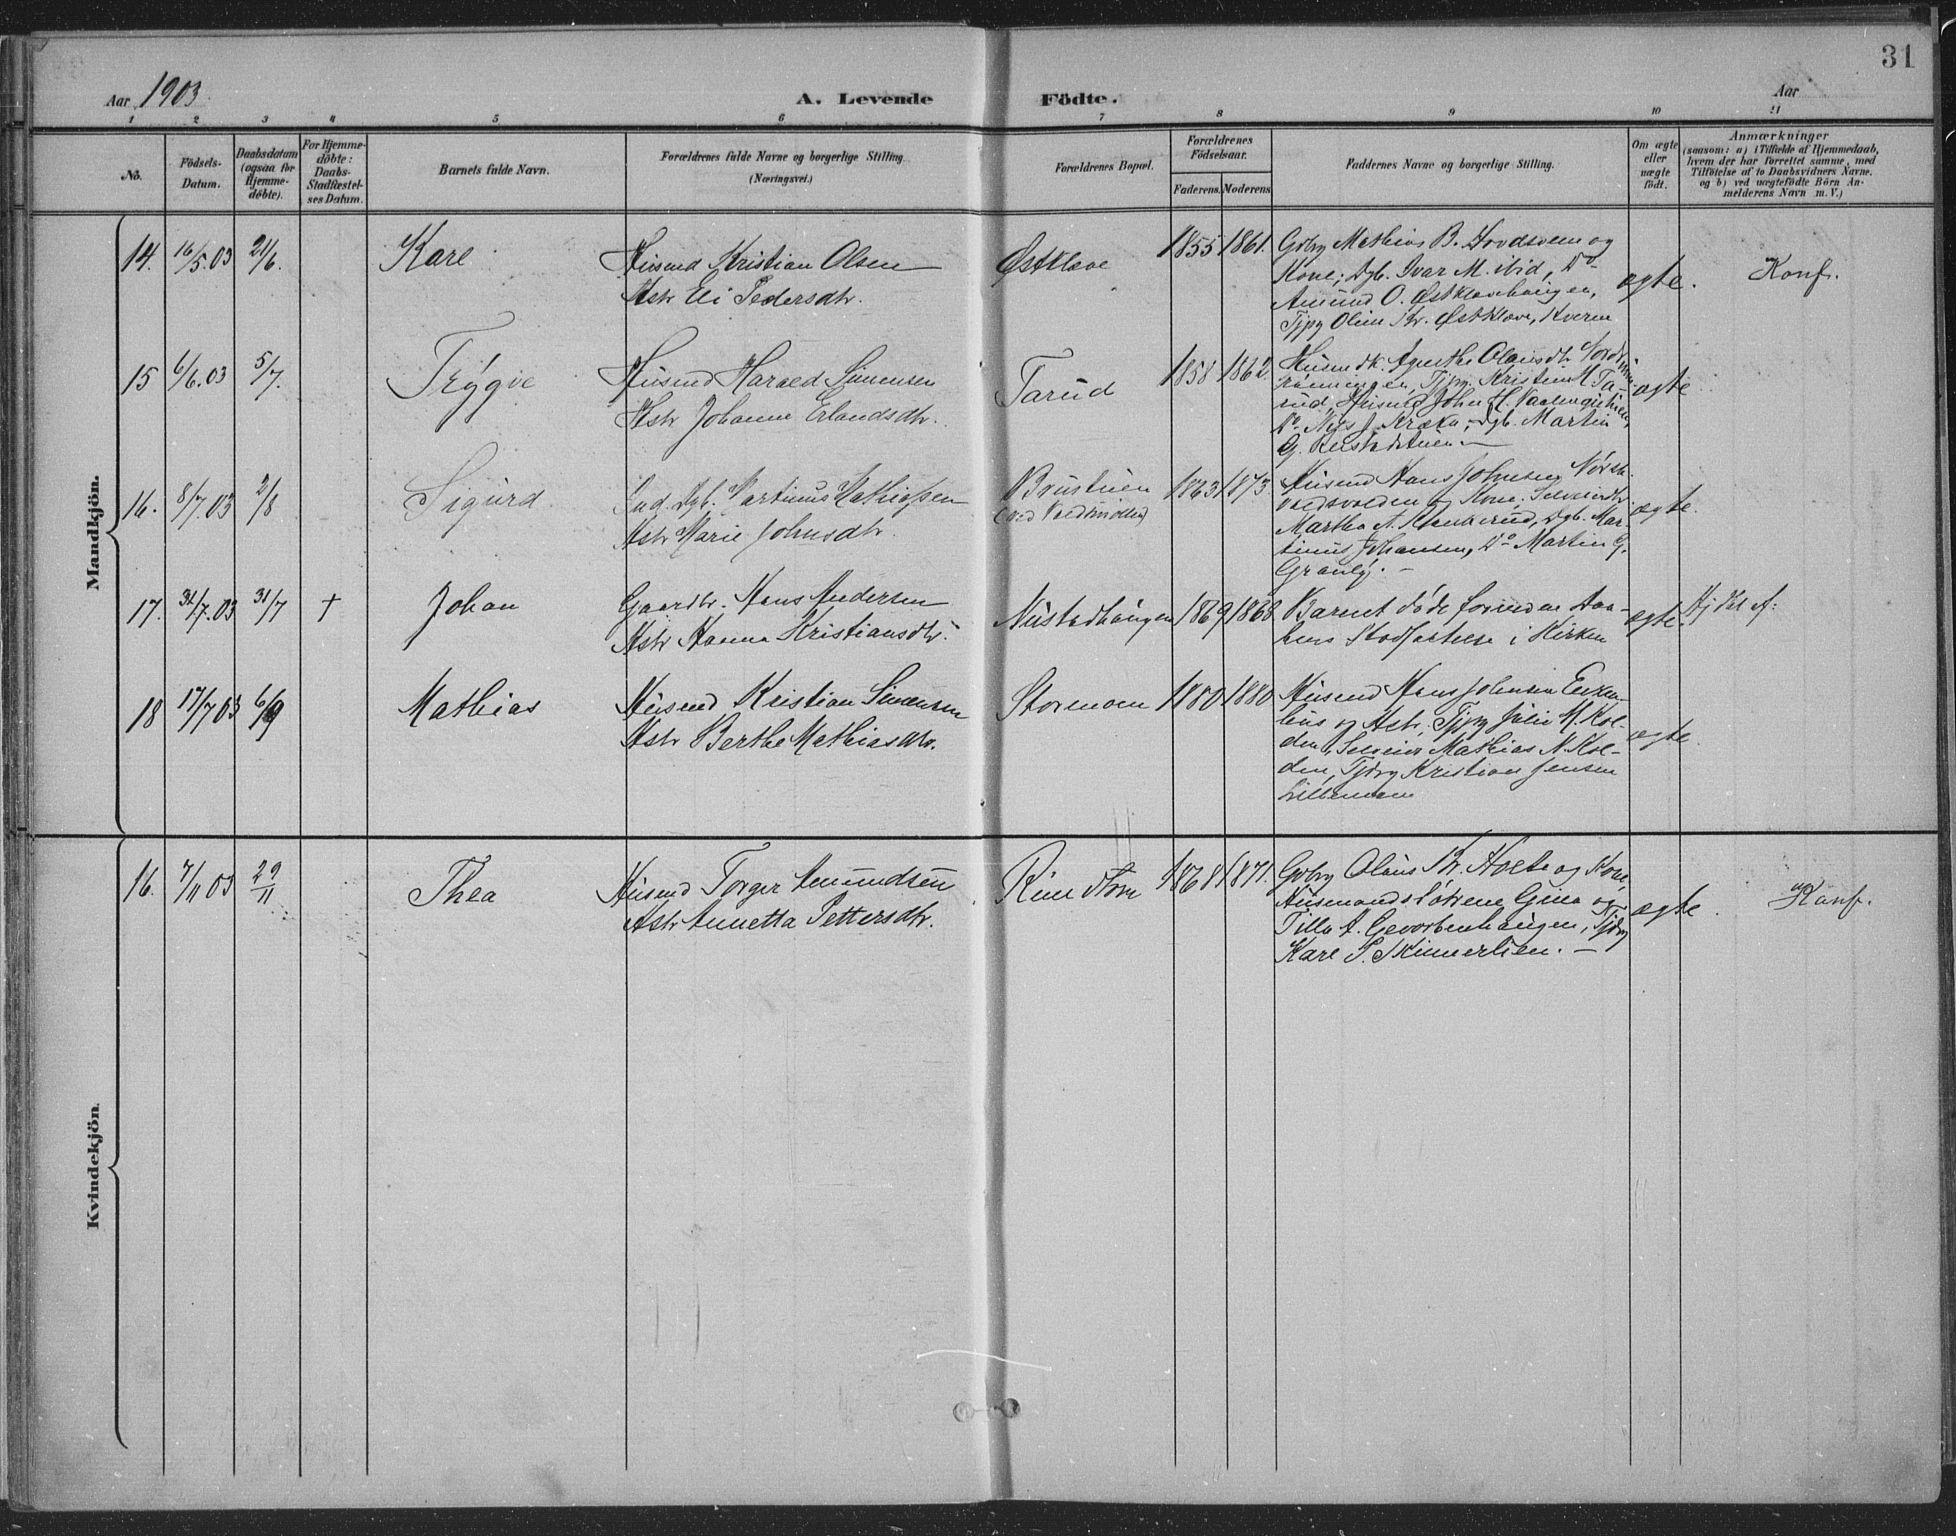 31
Aar 1903.
A. Levende Födte.
Aar
1 2 3 4 5 6 7 8 9 10 11
No.
Födsels-Datum.
Daabsdatum (ogsaa for Hjemme-döbte).
For Hjemme-döbte: Daabs-Stadfæstel-ses Datum.
Barnets fulde Navn.
Forældrenes fulde Navne og borgerlige Stilling. (Næringsvei.)
Forældrenes Bopæl.
Forældrenes Födselsaar.
Faderens. Moderens.
Faddernes Navne og borgerlige Stilling.
Om ægte eller uægte födt.
Anmærkninger
(saasom: a) i Tilfælde af Hjemmedaab,
hvem der har forrettet samme, med
Tilföielse af to Daabsvidners Navne.
og b) ved uægtefödte Börn An-
melderens Navn m. V.)
Mandkjön.
14. 16/5.03 21/6. Karl
Husmd Kristian Olsen
Hstr Eli Pedersdtr.
Østkløve 1855 1861.
Gdbrg Mathias B. og
Kone; Dgb. Ivar M. ibid, Do
Amund O. Østkløvehaugen,
Tjpg Oline Kr. Østkløve, Kværn
ægte. Konf.
15 6/6.03 5/7. Trygve
Husmd Harald Simensen
Hstr Johanne Erlandsdtr.
Tarud 1858 1862
Husmdk. Agnethe Olausdtr
Tjpg. Kristin M. Ta-
rud, Husmd John H.
Do. Nils J. Dgb. Martin
G.
ægte
16. 8/7.03 2/8 Sigurd
Ind. Dgb. Martinus Mathiassen
Hstr Marie Johnsdtr.
Brustuen
(ved )
1863 1873
Husmd Hans Johnsen
og Kone.
Martha A. Dgb. Mar-
tinus Johansen, Do Martin G.
Granly. -
ægte.
17. 31/7.03 31/7 † Johan
Gaardbr. Hans Andersen
Hstr Hanna Kristiansdtr.
Nustadhaugen 1869 1868
Barnet døde forinden Daa-
bens Stadfæstelse i Kirken
ægte.
18 17/7 03 6/9 Mathias
Husmd Kristian Simensen
Hstr Berthe Mathiasdtr.
Stormoen 1880 1880
Husmd Hans Johnsen
hus og Hstr, Tjpg Julie M. Kol-
den, Mathias N. Kol-
den, Tjdrg Kristian Jensen
Lillemoen
ægte.
Kvindekjön.
16. 7/11 03 29/11 Thea
Husmd Torger Amundsen
Hstr Annetta Pettersdtr.
1868 1871.
Gdbrg Olaus Kr. Holte og Kone,
Husmandsdøtrene Gina og
Tilla A. Tjdrg
Karl S. Skinnerlien. -
ægte. Konf.